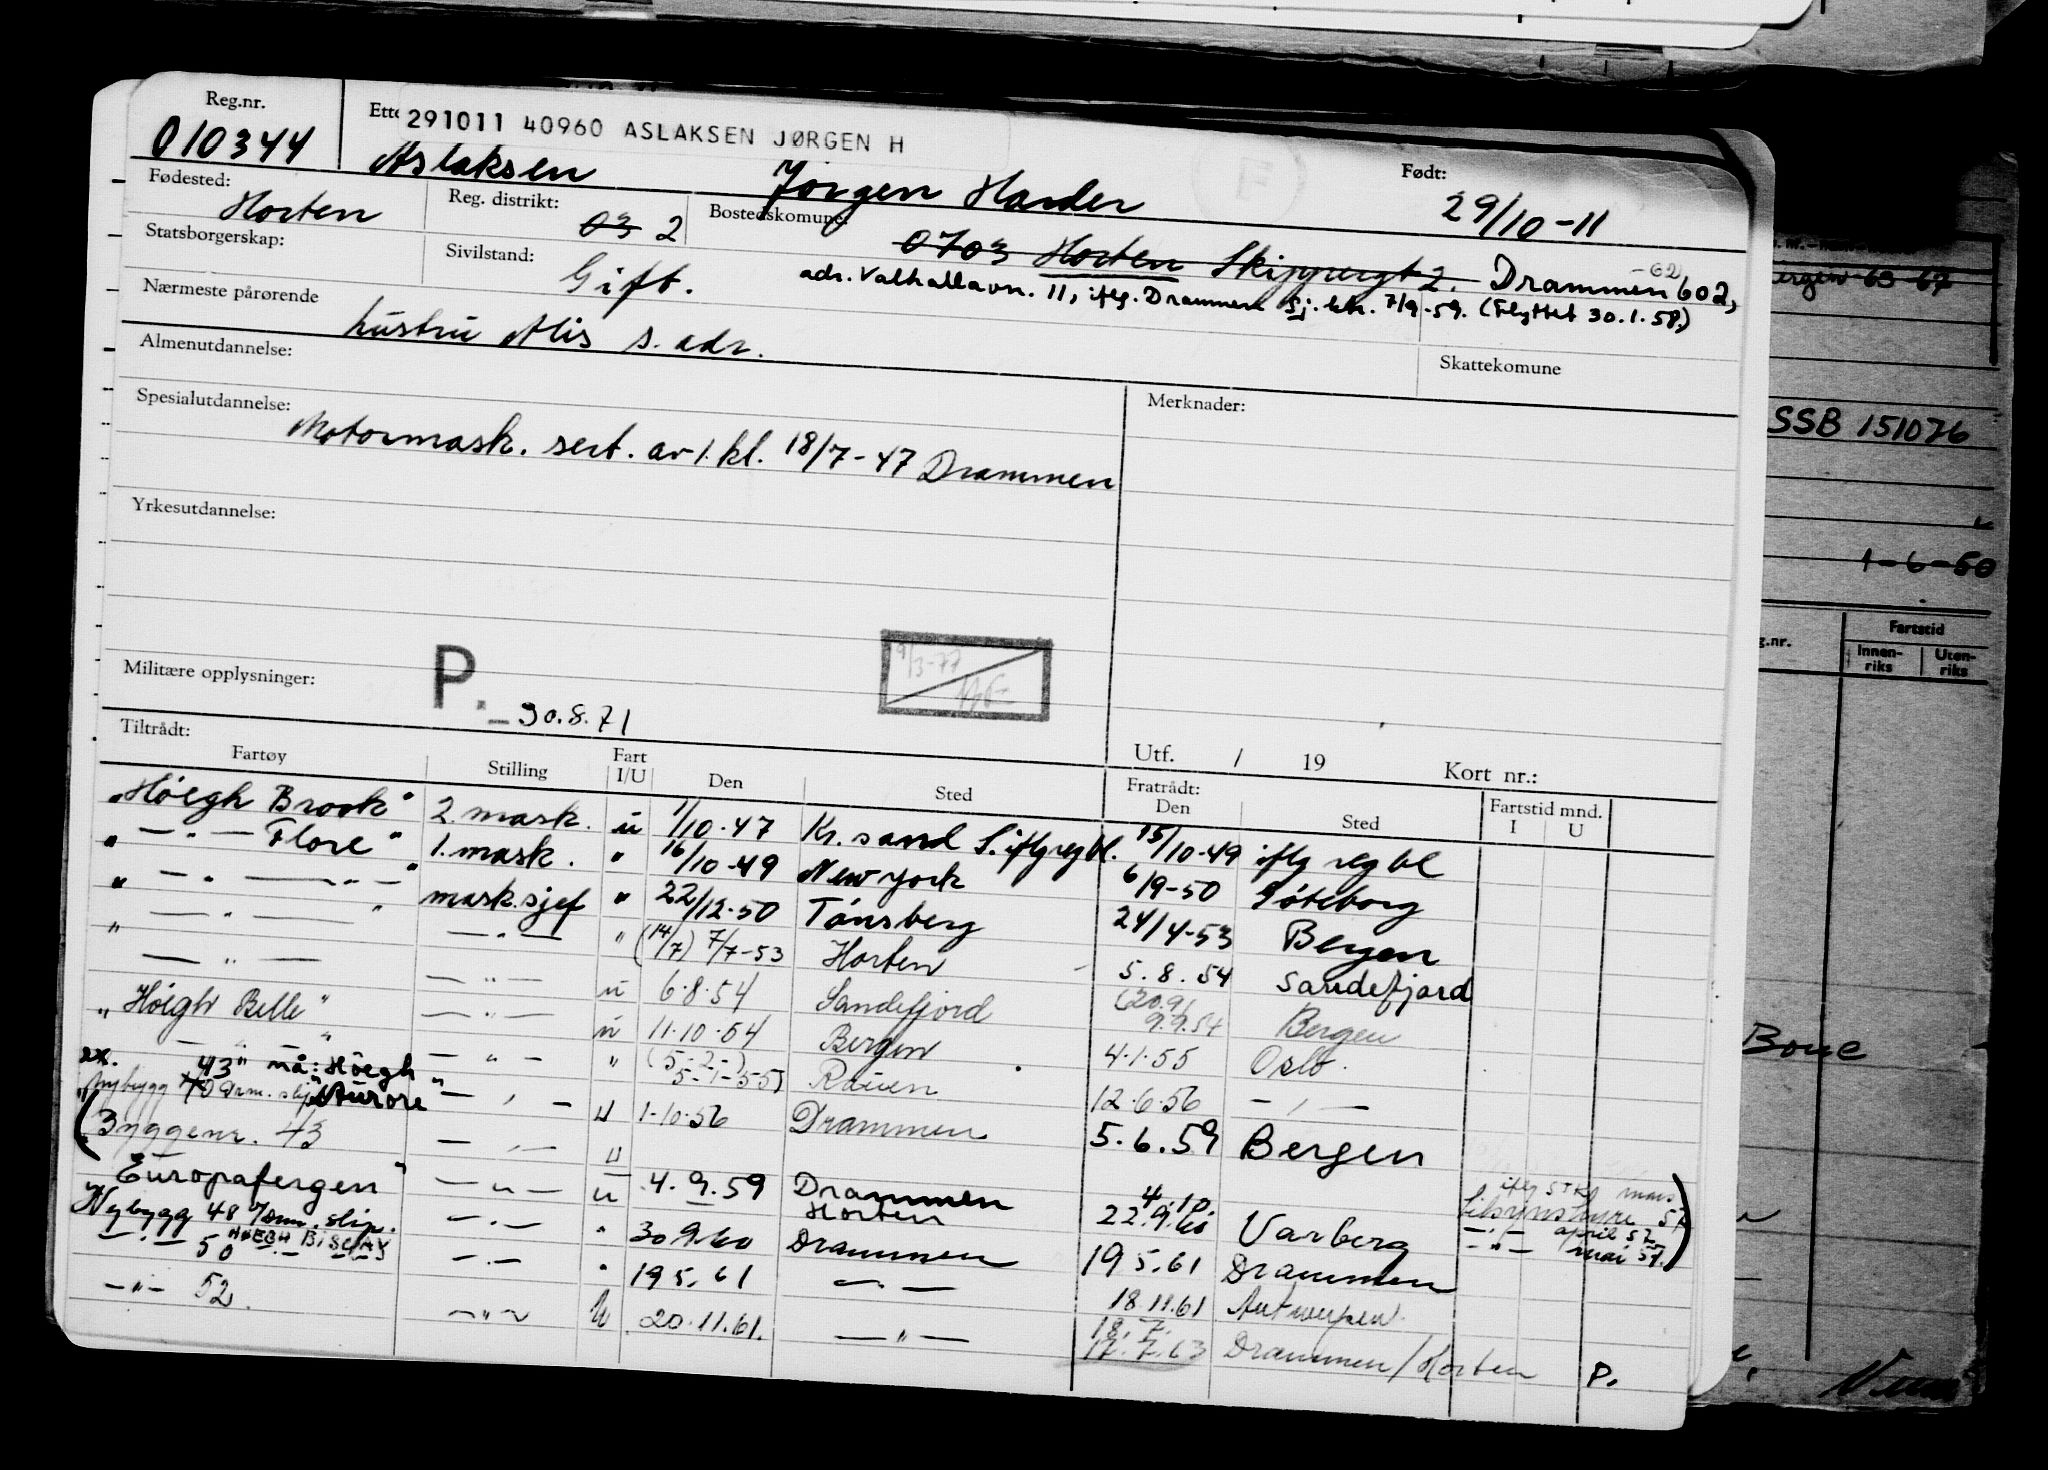 Reg.nr.
010344
291011 40960 ASLAKSEN JØRGEN H
Aslaksen Jørgen Harder
Født:
29/10-11
Fødested:
Horten
Reg. distrikt:
03 2
Bostedskomune:
0703 Horten Skippergt 2. Drammen 602,
-62
adr. Valhallavn. 11, iflg. Drammen Sj. ktr. 7/9-59. (Flyttet 30.1.58.)
Statsborgerskap:
Sivilstand:
Gift.
Nærmeste pårørende
hustru Alis s. adr.
Skattekomune
Almenutdannelse:
Spesialutdannelse:
Motormask. sert. av 1. kl. 18/7-47 Drammen
Merknader:
Yrkesutdannelse:
Militære opplysninger:
P.
30.8.71
9/3-77
Tiltrådt:
Utf. / 19 Kort nr.:
Fartøy Stilling Fart I/U Den Sted Fratrådt: Den Sted Fartstid mnd. I U
"Høegh Brook" 2 mask. u 1/10-47 Kr. sand S. iflg reg bl. 15/10-49 iflg reg bl
" — " — Flore" 1. mask. " 16/10-49 New York 6/9-50 Gøteborg
" — " — " — " mask.sjef " 22/12-50 Tønsberg 24/4-53 Bergen
" — " — " — " — " (14/7) 7/7-53 Horten 5.8.54 Sandefjord
— " — — " — u 6.8.54 Sandefjord (20.9) 9.9.54 Bergen
"Høegh Belle" — " — u 11.10.54 Bergen 4.1.55 Oslo.
— " — " — " — " (5-2-) 5-1-55) Rouen 12.6.56 — " —
ex. 43" nå: Høegh
Nybygg 40 Drm. slip "Aurore" — " — u 1-10-56 Drammen 5.6.59 Bergen
(Byggenr. 43 — " — u
iflg
tilsynshyre
— " — april 57
— " — mai 57.)
"Europafergen" — " — u 4.9.59 Drammen Horten 4.10. 22.9.60 Varberg
Nybygg 48 Drm. slip. — " — " 30.9.60 Drammen 19 5.61 Drammen
HØEGH BISCAY
— " — 50 — " — " 19 5.61 — " — 18.11.61 Antwerpen.
— " — 52. — " — u 20.11.61. — " — 18.7. 17.7.63 Drammen/Horten P.
SSB 151076
1-6-50
Fartstid
Innen-riks
Uten-riks